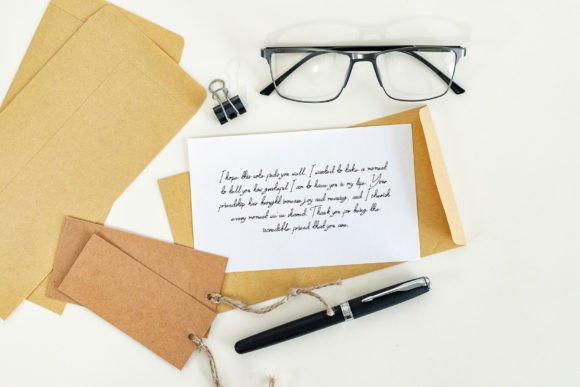 I hope this note finds you well. I wanted to take a moment
to tell you how grateful I am to have you in my life. Your
friendship has brought immense joy and meaning, and I cherish
every moment we've shared. Thank you for being the
incredible friend that you are.